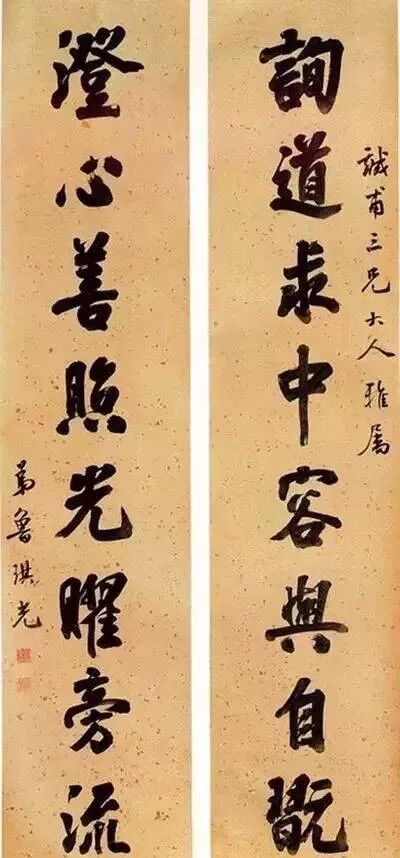 誠甫三兄大人雅属
詢道求中容與自翫
澄心善照光曜旁流
弟魯琪光